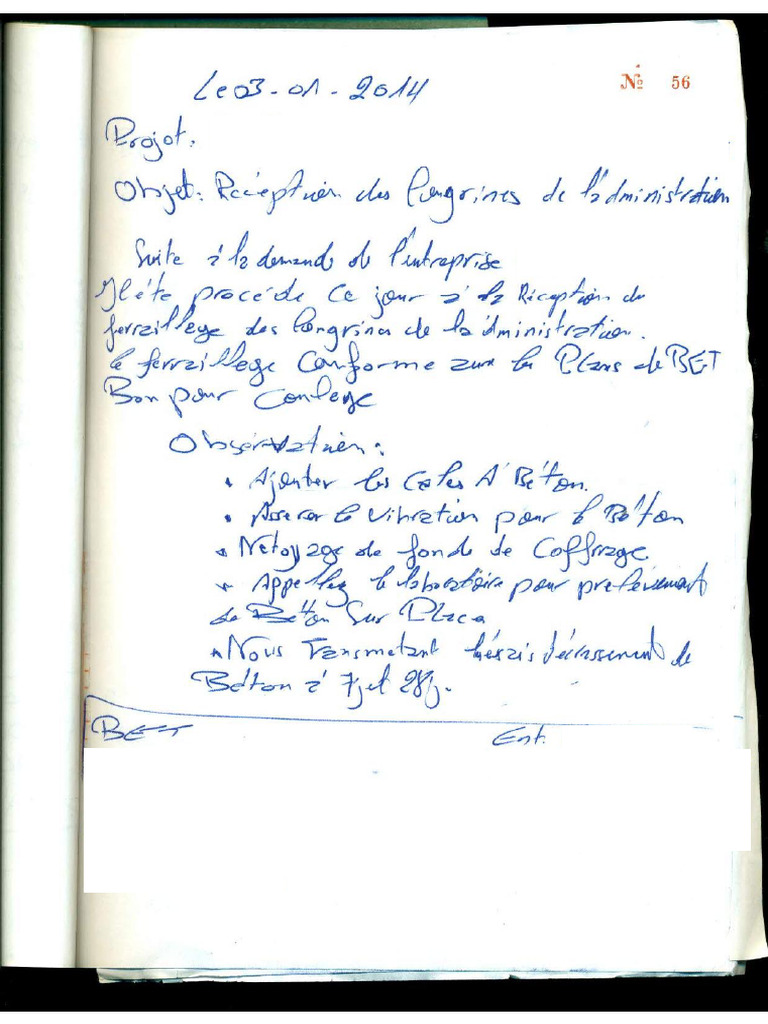 Le 03-01-2014
№ 56
Projet.
Objet: Réception des longrines de l'administration
Suite à la demande de l'entreprise
Il été procéde Ce jour à la Réception du
ferraillege des longrines de l'administration.
le ferraillege Conforme aux les Plans de BET
Bon pour Coulege
Observation:
• Ajouter les Cales A Béton.
• Assurer la vibration pour le Béton
• Netoyage de fond de Coffrage
• Appellez le laboratoire pour prelèvement
de Béton Sur Place
• Nous Transmetant d'écrassement de
Béton à 7j et 28j.
BET Ent.